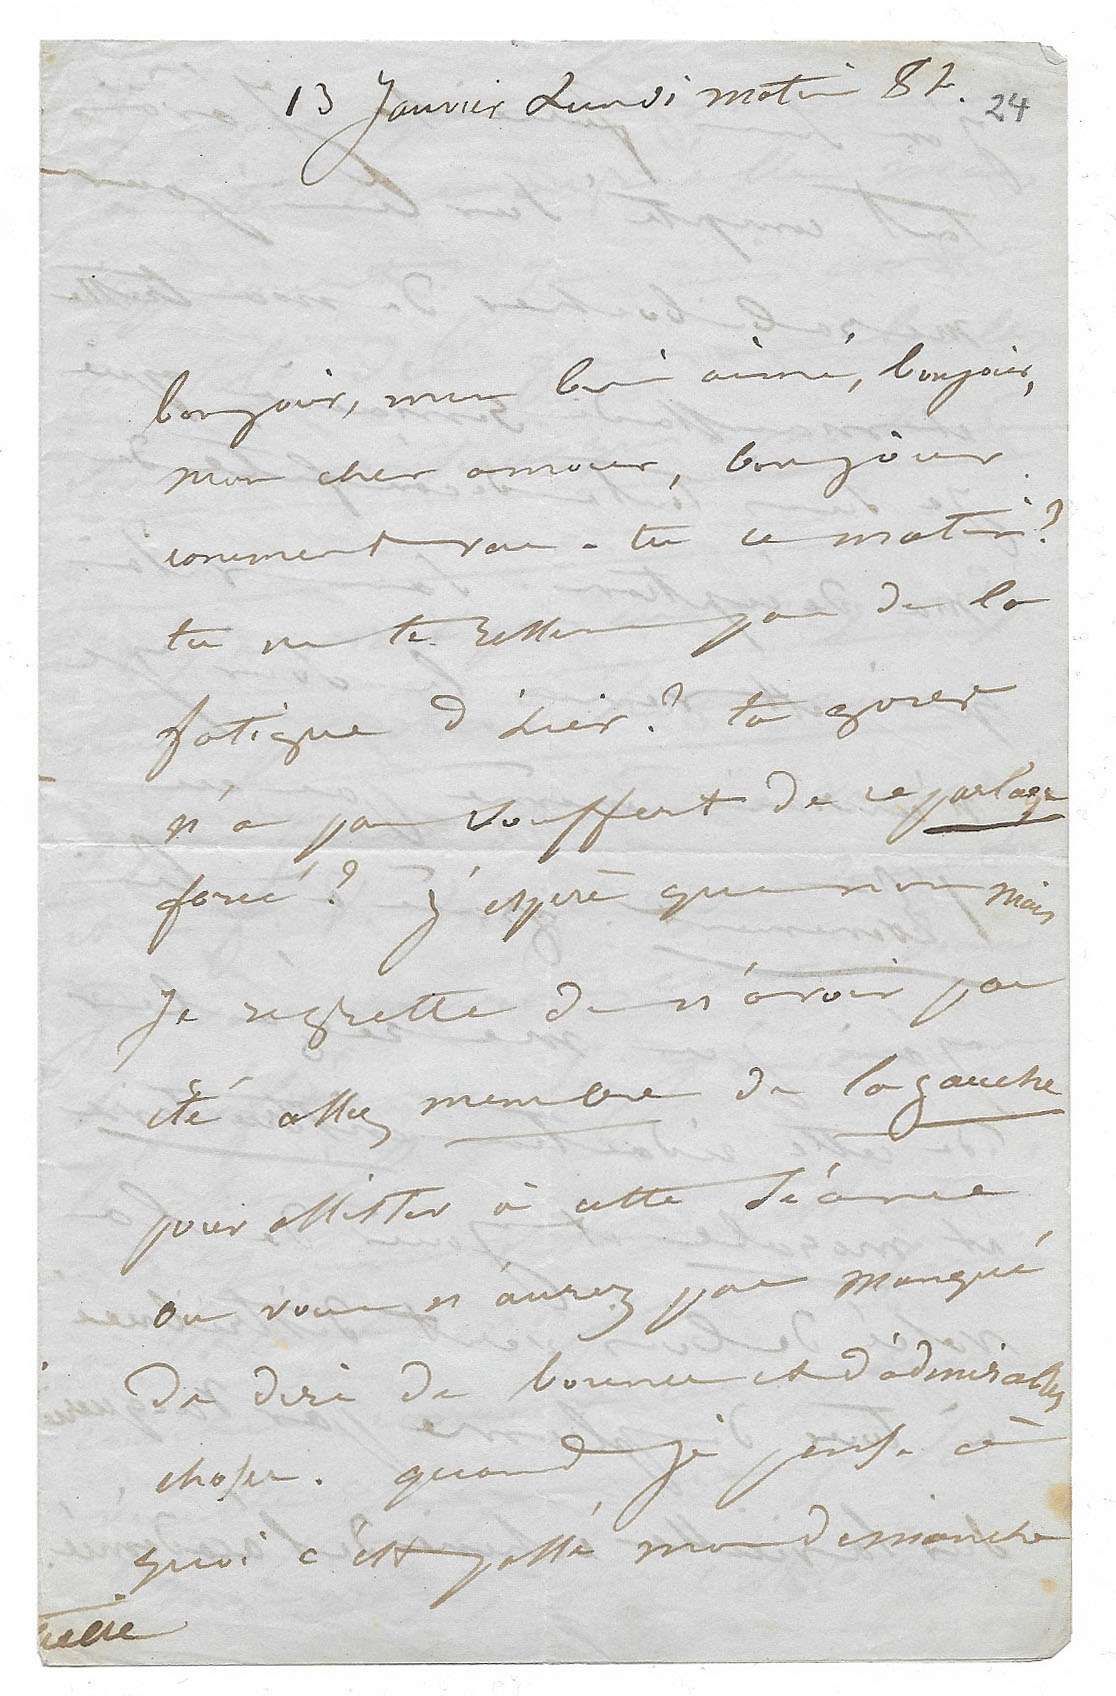 13 Janvier Lundi matin 8h.
24
bonjour, mon bien aimé, bonjour,
mon cher amour, bonjour.
comment vas-tu ce matin?
tu ne te ressens pas de la
fatigue d'hier? ta gorge
n'a pas souffert de ce parlage
forcé? J'espère que non mais
Je regrette de n'avoir pas
été assez membre de la gauche
pour assister à cette séance
où vous n'aurez pas manqué
de dire de bonnes et d'admirables
choses. quand je pense à
quoi c'est passé mon dimanche